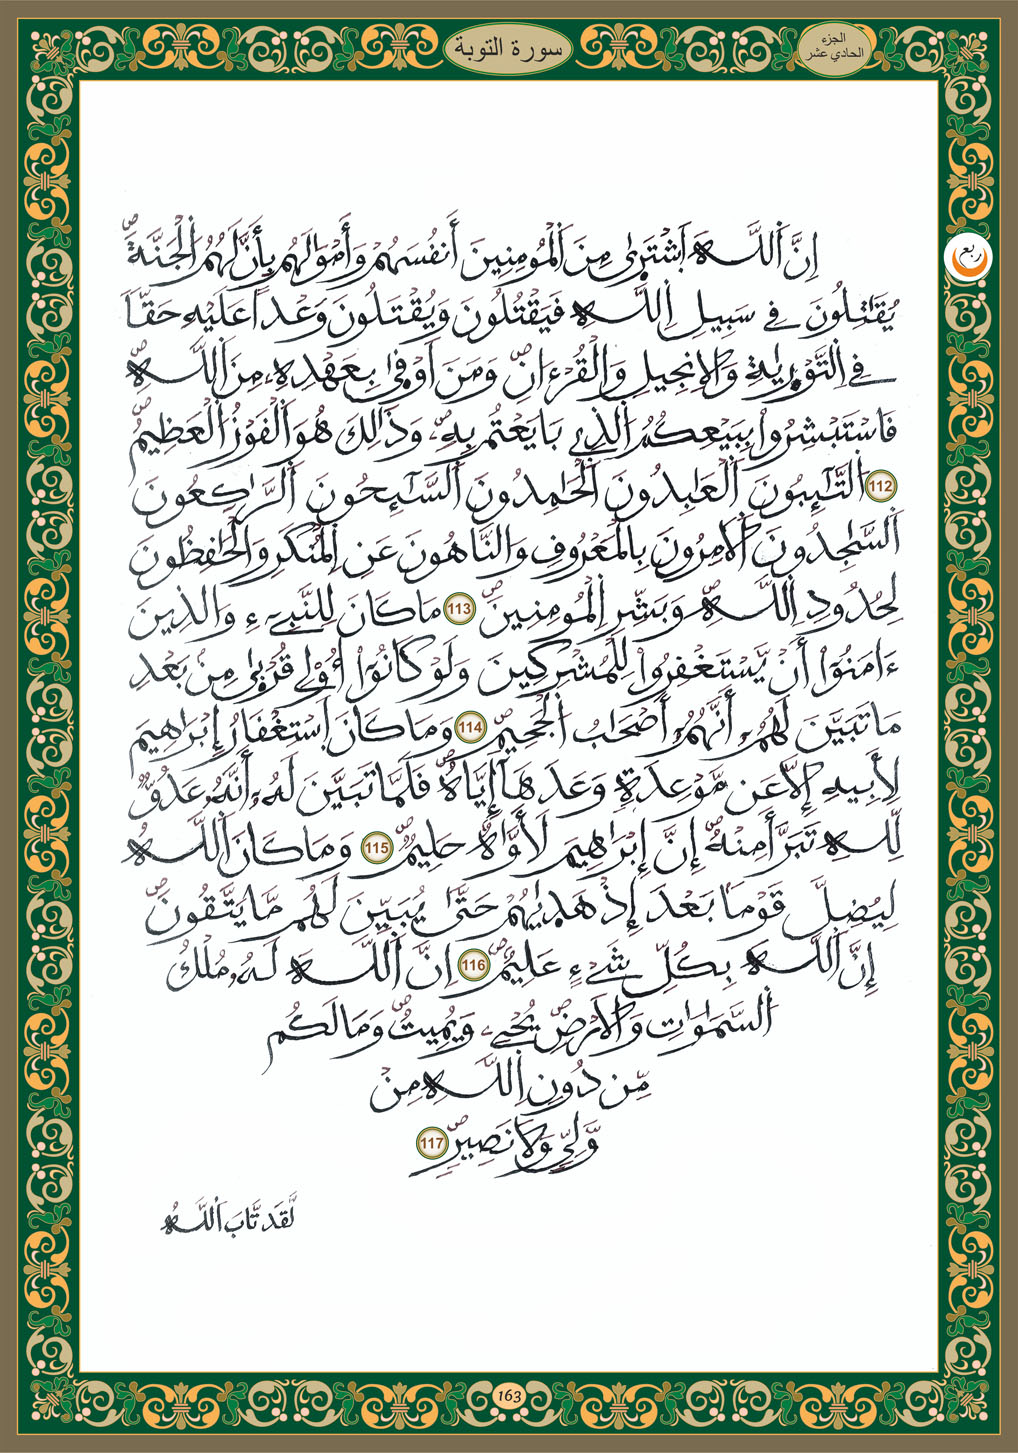 سورة التوبة
الجزء
الحادي عشر
ربع
إِنَّ اَللَّهَ اَشْتَرِىٰ مِنَ اَلْمُومِنِينَ أَنفُسَهُمْ وَأَمْوَٰلَهُم بِأَنَّ لَهُمُ اُلْجَنَّةَۖ
يُقَٰتِلُونَ فِے سَبِيلِ اِللَّهِ فَيَقْتُلُونَ وَيُقْتَلُونَ وَعْداً عَلَيْهِ حَقّاٗ
فِے اِلتَّوْرِيٰةِ وَالِانجِيلِ وَالْقُرْءَانِۖ وَمَنَ اَوْفٜيٰ بِعَهْدِهِۦ مِنَ اَللَّهِۖ
فَاسْتَبْشِرُواْ بِبَيْعِكُمُ اُلذِے بَايَعْتُم بِهِۦۖ وَذَٰلِكَ هُوَ اَلْفَوْزُ اُلْعَظِيمُۖ
112 اُلتَّٰٓئِبُونَ اَلْعَٰبِدُونَ اَلْحَٰمِدُونَ اَلسَّٰٓئِحُونَ اَلرَّٰكِعُونَ
اَلسَّٰجِدُونَ اَلَامِرُونَ بِالْمَعْرُوفِ وَالنَّاهُونَ عَنِ اِلْمُنكَرِ وَالْحَٰفِظُونَ
لِحُدُودِ اِللَّهِۖ وَبَشِّرِ اِلْمُومِنِينَۖ 113 مَا كَانَ لِلنَّبِےٓءِ وَالذِينَ
ءَامَنُوٓاْ أَنْ يَّسْتَغْفِرُواْ لِلْمُشْرِكِينَ وَلَوْ كَانُوٓاْ أُوْلِے قُرْبٜىٰ مِنۢ بَعْدِ
مَا تَبَيَّنَ لَهُمُۥٓ أَنَّهُمُۥٓ أَصْحَٰبُ اُلْجَحِيمِۖ 114 وَمَا كَانَ اَسْتِغْفَارُ إِبْرَٰهِيمَ
لِأَبِيهِ إِلَّا عَن مَّوْعِدَةٖ وَعَدَهَآ إِيَّاهُۖ فَلَمَّا تَبَيَّنَ لَهُۥٓ أَنَّهُۥ عَدُوّٞ
لِّلهِ تَبَرَّأَ مِنْهُۖ إِنَّ إِبْرَٰهِيمَ لَأَوَّٰهٌ حَلِيمٞۖ 115 وَمَا كَانَ اَللَّهُ
لِيُضِلَّ قَوْماَۢ بَعْدَ إِذْ هَد۪يٰهُمْ حَتَّيٰ يُبَيِّنَ لَهُم مَّا يَتَّقُونَۖ
إِنَّ اَللَّهَ بِكُلِّ شَےْءٍ عَلِيمٌۖ 116 اِنَّ اَللَّهَ لَهُۥ مُلْكُ
اُلسَّمَٰوَٰتِ وَالَارْضِۖ يُحْيِۦ وَيُمِيتُۖ وَمَا لَكُم
مِّن دُونِ اِللَّهِ مِنْ
وَّلِيّٖ وَلَا نَصِيرٖۖ 117
لَّقَد تَّابَ اَللَّهُ
163